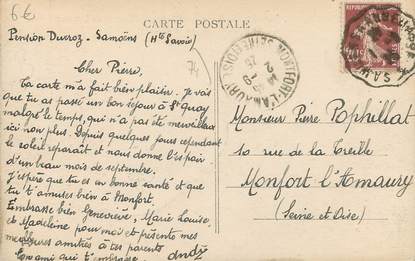 6€
CARTE POSTALE
Pension Duvroz - Samoëns (Hte Savoie)
74
Cher Pierre,
Ta carte m'a fait bien plaisir. Je vois
que tu as passé un bon séjour à St Quay
malgré le temps, qui n'a pas été merveilleux
ici non plus. Depuis quelques jours cependant
le soleil reparait et nous donne l'espoir
d'un beau mois de septembre.
J'espère que tu es en bonne santé et que
tu t'amuses bien à Monfort.
Embrasse bien Geneviève, Marie Louise
de Madeleine pour moi et présente mes
meilleures amitiés à tes parents
Ton ami qui t'embrasse
André
MONFORT-L'AMAURY
SEINE-ET-OISE
Monsieur Pierre Pophillat
10 rue de la Treille
Monfort l'Amaury
(Seine et Oise)